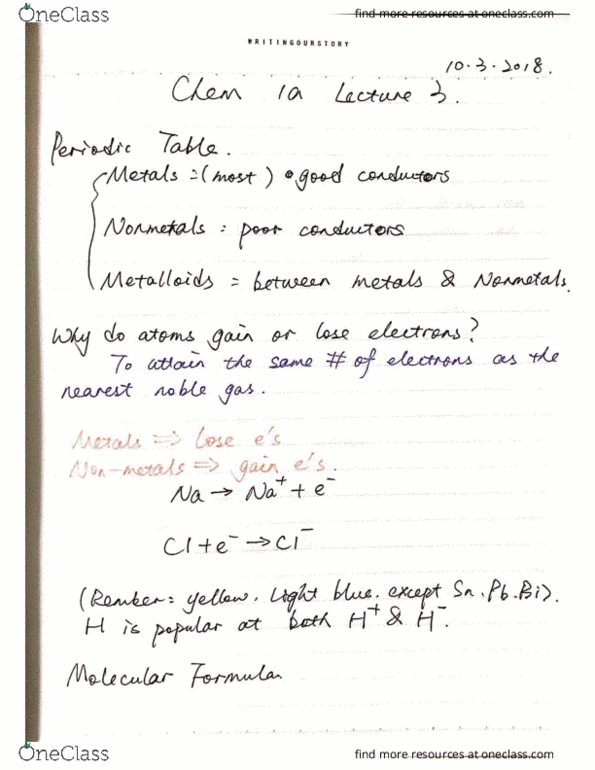 OneClass
find more resources at oneclass.com
WRITINGOURSTORY
10.3.2018.
Chem 1a Lecture 3.
Periodic Table.
Metals =(most) good conductors
Nonmetals : poor conductors
Metalloids = between metals & Nonmetals.
Why do atoms gain or lose electrons?
To attain the same # of electrons as the
nearest noble gas.
Metals => Lose e's
Non-metals => gain e's.
Na → Na⁺ + e⁻
Cl + e⁻ → Cl⁻
(Rember: yellow. Light blue. except Sn. Pb. Bi).
H is popular at both H⁺ & H⁻.
Molecular Formula
OneClass
find more resources at oneclass.com